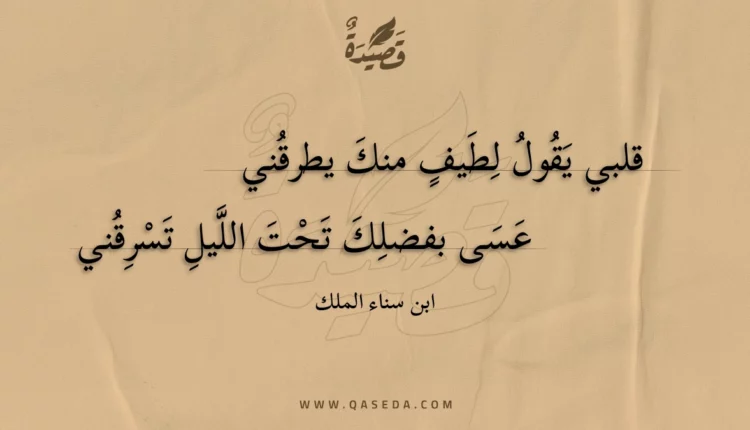 قَصِيْدَةٌ
قلبي يَقُولُ لِطَيفٍ منكَ يطرقُني
عَسَى بفضلِكَ تَحْتَ اللَّيلِ تَسْرِقُني
ابن سناء الملك
WWW.QASEDA.COM